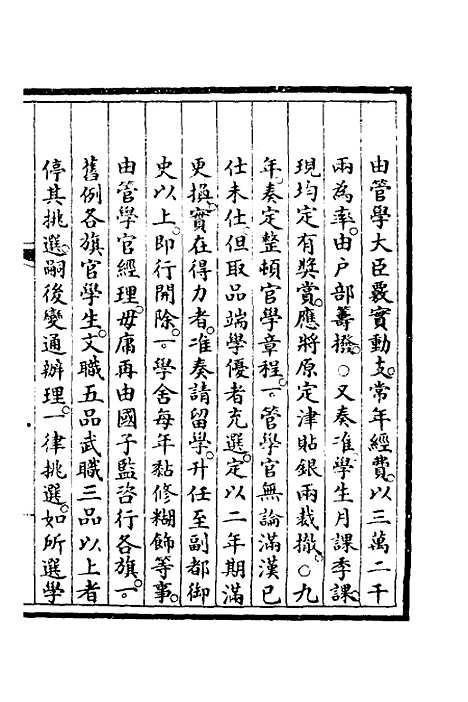 由管學大臣覈實動支。常年經費。以三萬二千
兩為率。由戶部籌撥。○又奏准學生月課季課。
現均定有獎賞。應將原定津貼銀兩裁撤。○九
年奏定整頓官學章程。一。管學官無論滿漢已
仕未仕。但取品端學優者充選。定以二年期滿
更換。實在得力者。准奏請留學。升任至副都御
史以上。即行開除。一。學舍每年黏修糊飾等事。
由管學官經理。毋庸再由國子監咨行各旗。一。
舊例各旗官學生。文職五品武職三品以上者
停其挑選。嗣後變通辦理。一律挑選。如所選學